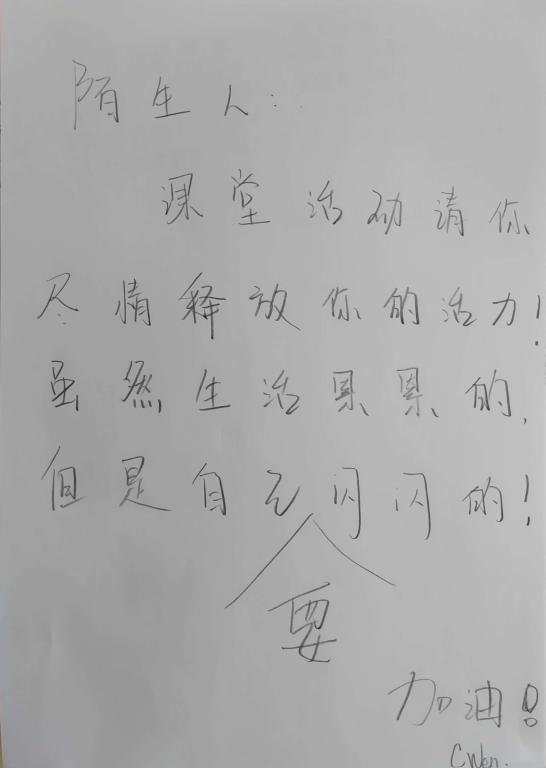 陌生人：
课堂活动请你
尽情释放你的活力！
虽然生活累累的，
但是自己闪闪的！
要
加油！
CWen.